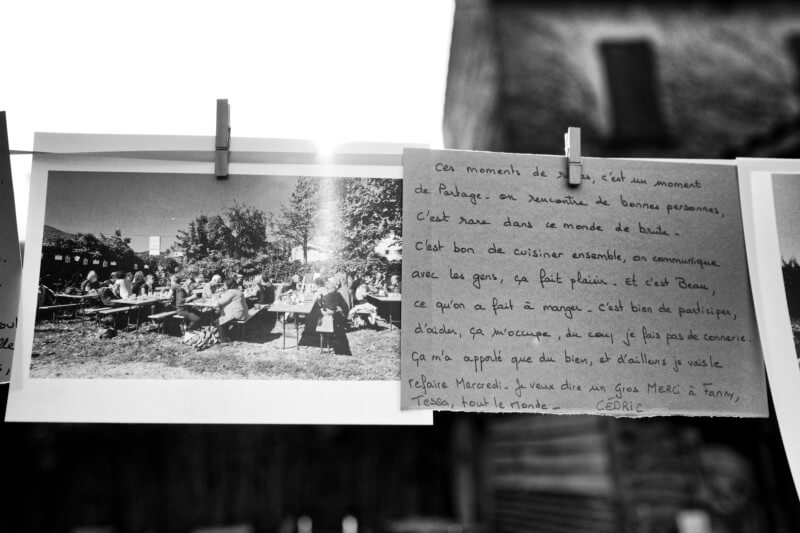 Ces moments de r as, c'est un moment
de Partage - on rencontre de bonnes personnes,
C'est rare dans ce monde de brute -
C'est bon de cuisiner ensemble, on communique
avec les gens, ça fait plaisir - Et c'est Beau,
ce qu'on a fait à manger - c'est bien de participer,
d'aider, ça m'occupe, du coup je fais pas de connerie.
Ça m'a apporté que du bien, et d'ailleurs je vais le
refaire Mercredi - Je veux dire un Gros MERCI à Fanny,
Tessa, tout le Monde - CÉDRIC